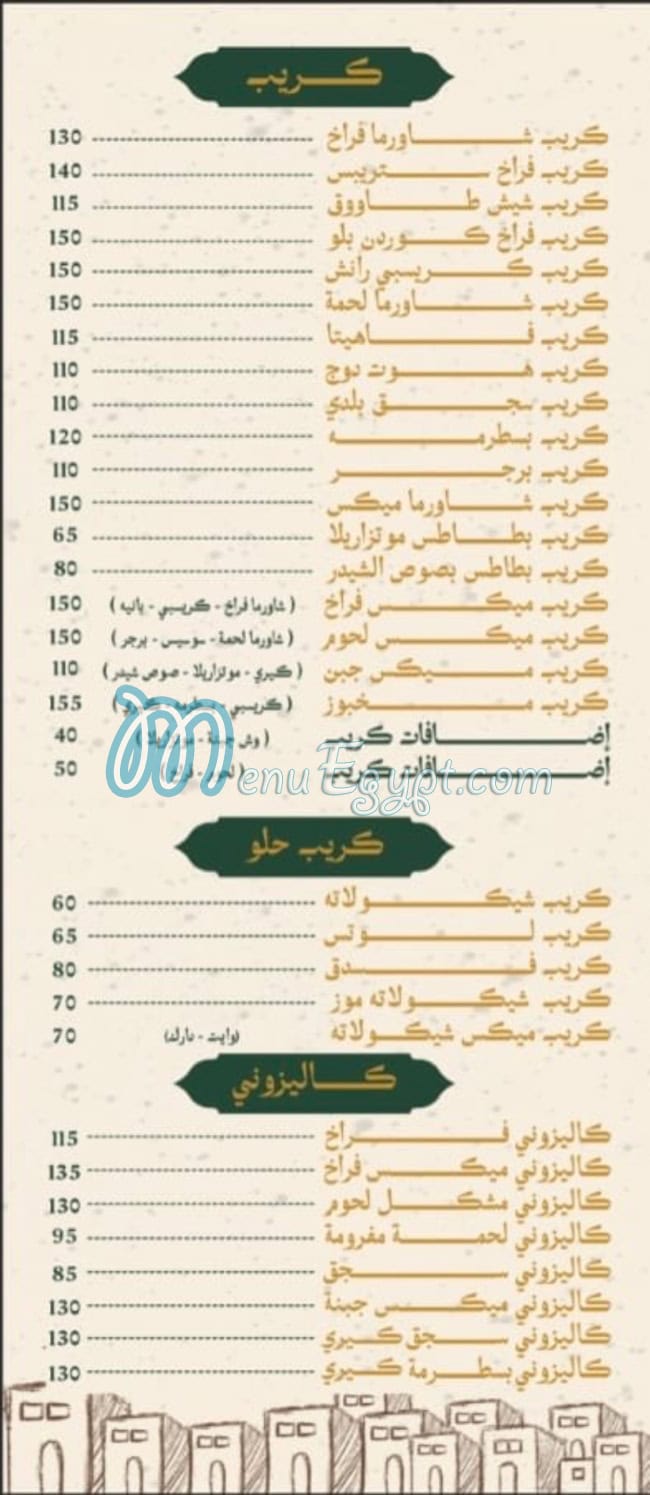 كريب
كريب شاورما فراخ 130
كريب فراخ ستربس 140
كريب شيش طاووق 115
كريب فراخ كوردن بلو 150
كريب كريسبي رانش 150
كريب شاورما لحمة 150
كريب فاهيتا 115
كريب هوت دوج 110
كريب سجق بلدي 110
كريب بسطرمه 120
كريب برجر 110
كريب شاورما ميكس 150
كريب بطاطس موتزاريلا 65
كريب بطاطس بصوص الشيدر 80
كريب ميكس فراخ ( شاورما فراخ - كريسبي - بانيه ) 150
كريب ميكس لحوم ( شاورما لحمة - سوسيس - برجر ) 150
كريب ميكس جبن ( كيري - موتزاريلا - صوص شيدر ) 110
كريب مخبوز ( كريسبي - كيري ) 155
إضافات كريب ( وش جبنة - موتزاريلا ) 40
إضافات كريب ( لحوم - فراخ ) 50
MenuEgypt.com
كريب حلو
كريب شيكولاته 60
كريب لوتس 65
كريب فسدق 80
كريب شيكولاته موز 70
كريب ميكس شيكولاته (وايت - دارك) 70
كاليزوني
كاليزوني فراخ 115
كاليزوني ميكس فراخ 135
كاليزوني مشكل لحوم 130
كاليزوني لحمة مفرومة 95
كاليزوني سجق 85
كاليزوني ميكس جبنة 130
كاليزوني سجق كيري 130
كاليزوني بسطرمة كيري 130